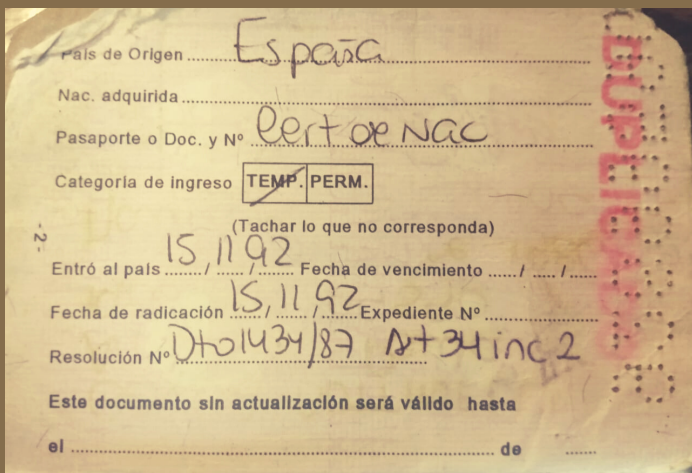 País de Origen ........ España
Nac. adquirida ........
Pasaporte o Doc. y Nº Cert de Nac
Categoría de ingreso TEMP. PERM.
(Tachar lo que no corresponda)
Entró al país 15, 11 92 Fecha de vencimiento ...../ ..... /.....
Fecha de radicación 15, 11, 92 Expediente Nº ........
Resolución Nº Dto 1434/87 Art 34 inc 2
Este documento sin actualización será válido hasta
el ........ de ......
-2-
DUPLICADO